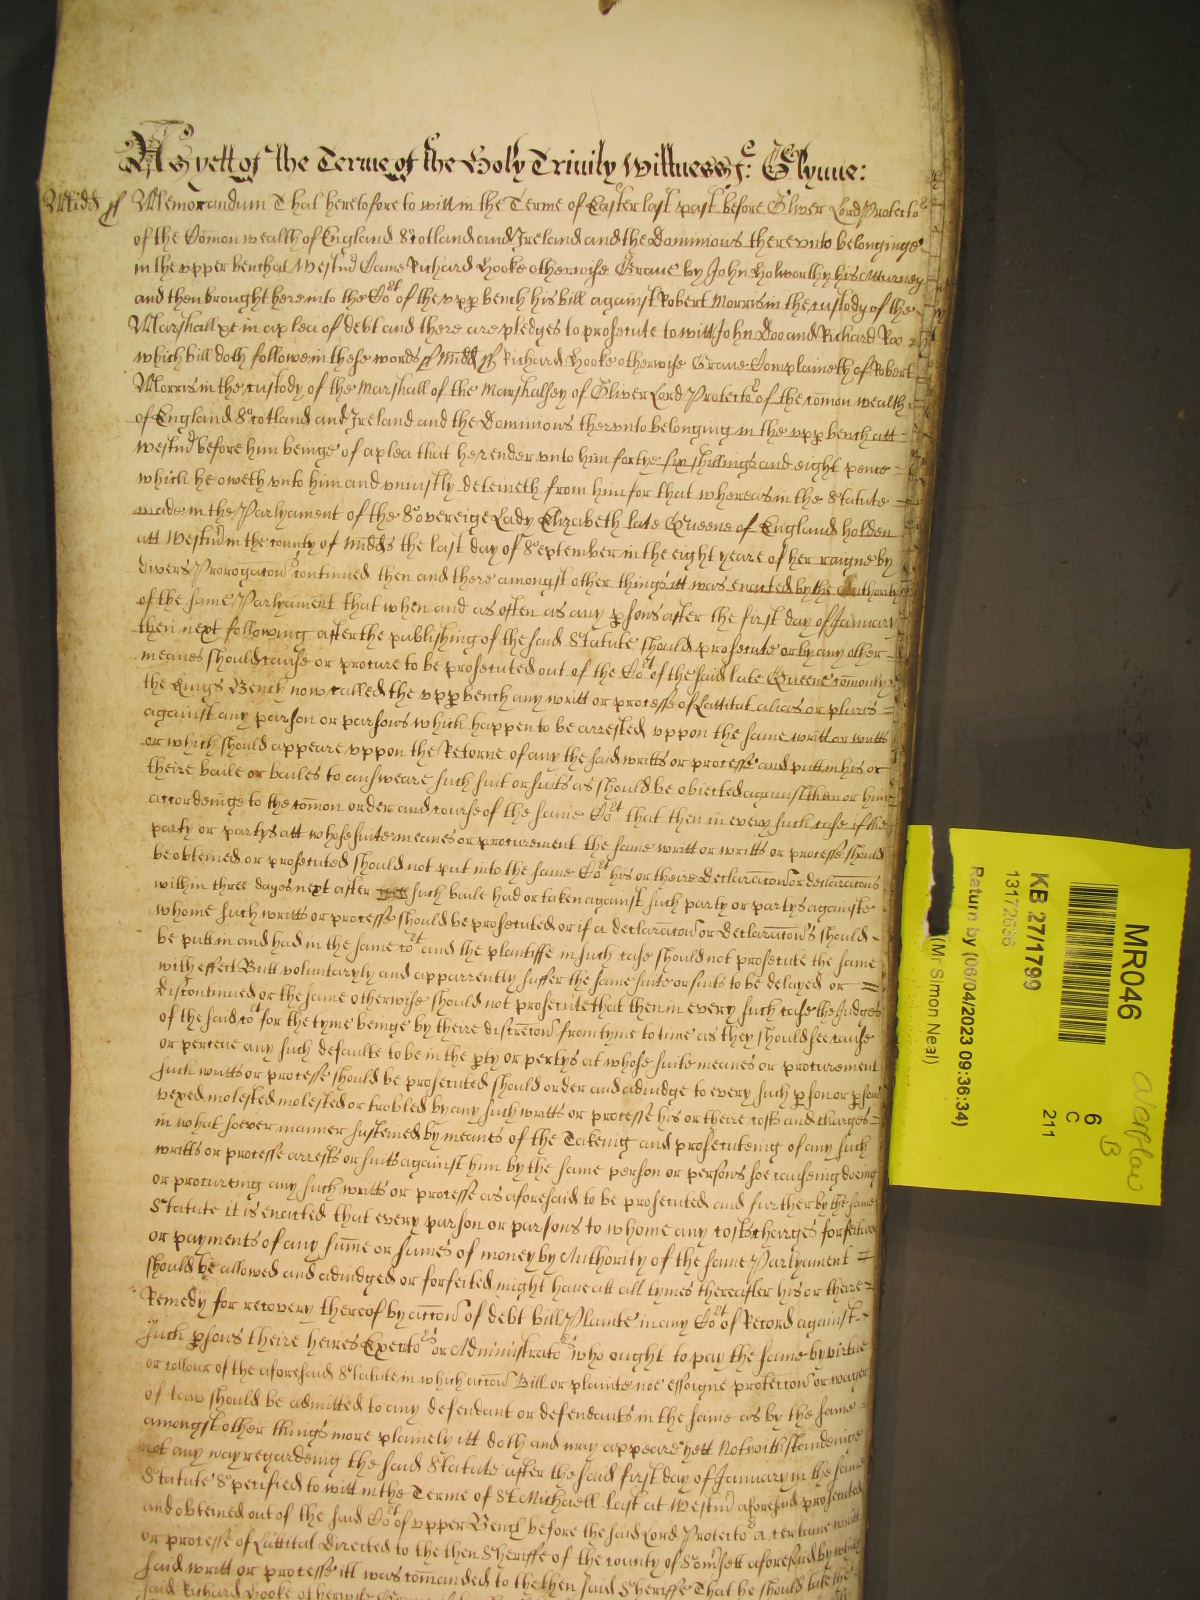 As yett of the Terme of the Holy Trinity Wittnesse J: Glynne:
Midd ss Memorandum That heretofore to witt in the Terme of Easter last past before Oliver Lord Protector
of the Comon wealth of England Scotland and Ireland and the Dominions therevnto belonginge
in the vpper bench at Westmr Came Richard Hooke otherwise Graue by John Holworthy his Atturney
and then brought here into the Cort of the vpp bench his bill against Robert Morris in the custody of the
Marshall &c in a plea of debt and there are pledges to prosecute to witt John Doo and Richard Roo
which bill doth followe in these words ss Midd ss Richard Hooke otherwise Graue Complaineth of Robert
Morris in the custody of the Marshall of the Marshalsey of Oliver Lord Protector of the comon wealth
of England Scotland and Ireland and the Dominions thervnto belonging in the vpp bench att
Westmr before him beinge of a plea that he render vnto him fortye six shillings and eight pence
which he oweth vnto him and vniustly deteineth from him for that whereas in the Statute
made in the Parlyament of the Sovereige Lady Elizabeth late Queene of England holden
att Westmr in the county of Midds the last day of September in the eight yeare of her raigne by
divers Prorogacon continued then and there amongst other things itt was enacted by the Authority
of the same Parlyament that when and as often as any psons after the first day of January
then next following after the publishing of the said Statute should prosecute or by any other
meanes should cause or procure to be prosecuted out of the Cort of the said late Queene comonly
the Kings Bench now called the vpp bench any writt or processe of Lattitat alias or pluris
against any parson or parsons which happen to be arrested vppon the same writt or writts
or which should appeare vppon the Retorne of any the said writts or processe and putt in his or
theire baile or bailes to answeare such suit or suits as should be obiected against them or him
accordeinge to the comon order and course of the same Cort that then in every such case if the
party or partys att whose suite meanes or procurement the same writt or writts or processe should
be obteined or prosecuted should not put into the same Cort his or theire declaracon or declaracons
within three dayes next after such baile had or taken against such party or partys againste
whome such writts or processe should be prosecuted or if a declaracon or declaracons should
be putt in and had in the same cort and the plantiffe in such case should not prosecute the same
with effect Butt voluntaryly and apparrently suffer the same suite or suits to be delayed or
discontinued or the same otherwise should not prosecute that then in every such case the Judges
of the said cort for the tyme beinge by theire discrecon from tyme to time as they should see cause
or perceue any such defaulte to be in the pty or pertys at whose suite meanes or procurement
such writts or processe should be prosecuted should order and adiudge to every such pson or psons
vexed molested molested or trobled by any such writts or processe his or there costs and charges
in what soever manner susteined by meanes of the Takeing and prosecuteing of any such
writts or processe arrests or suits against him by the same person or persons soe causeing doeing
or procureing any such writts or processe as aforesaid to be prosecuted and further by the same
Statute it is enacted that every parson or parsons to whome any costs charges forfeitures
or payments of any sume or sumes of money by Authority of the same Parlyament
should be allowed and adiudged or forfeited might haue att all tymes thereafter his or theire
Remedy for recovery thereof by accon of debt bill Plainte in any Cort of Record against
such psons theire heires Executors or Administrators who ought to pay the same by virtue
or collour of the aforesaid Statute in which accon Bill or plainte noe essoigne proteccon or wager
of law should be admitted to any defendant or defendants in the same as by the same
amongst other things more plainely itt doth and may appeare yett Notwithstandeinge
not any way regardeing the said Statute after the said first day of January in the same
Statute Specified to witt in the Terme of St Michaell last at Westmr aforesaid prosecuted
and obteined out of the said Cort of vpper Bench before the said Lord Protector a certaine writt
or processe of Lattitat directed to the then Sheriffe of the county of Somsett aforesaid by which
said writt or processe itt was comanded to the then said Sheriffe That he should take the
said Richard Hooke otherwise
MR046
KB 27/1799
13172636
Return by (06/04/2023 09:36:34)
(Mr Simon Neal)
6
C
211
overflow
B